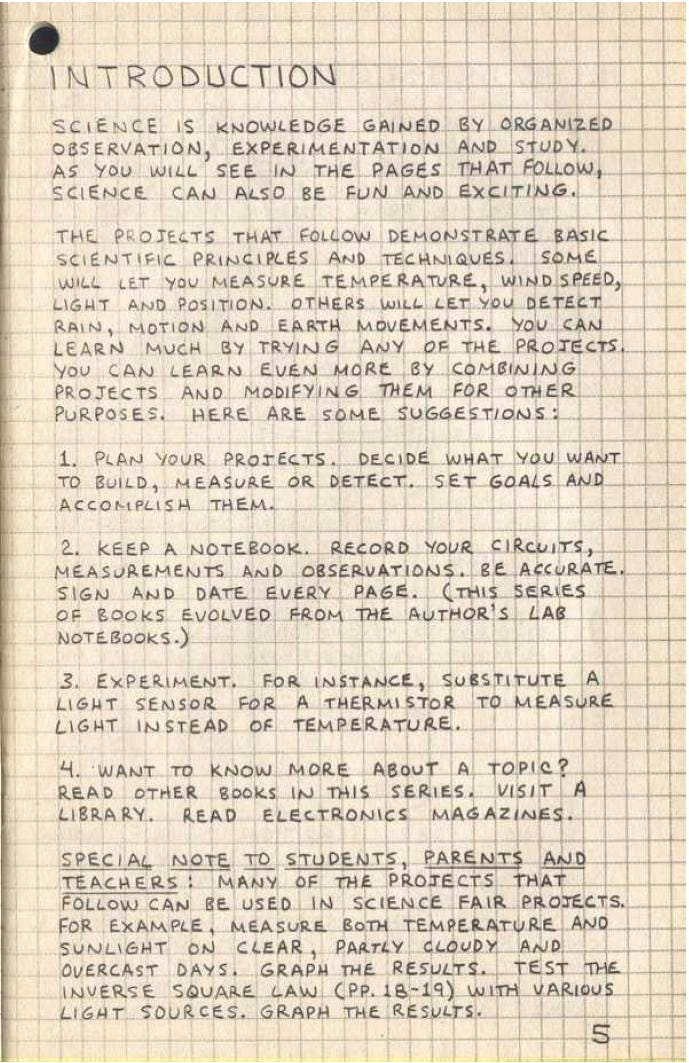 INTRODUCTION
SCIENCE IS KNOWLEDGE GAINED BY ORGANIZED
OBSERVATION, EXPERIMENTATION AND STUDY.
AS YOU WILL SEE IN THE PAGES THAT FOLLOW,
SCIENCE CAN ALSO BE FUN AND EXCITING.
THE PROJECTS THAT FOLLOW DEMONSTRATE BASIC
SCIENTIFIC PRINCIPLES AND TECHNIQUES. SOME
WILL LET YOU MEASURE TEMPERATURE, WIND SPEED,
LIGHT AND POSITION. OTHERS WILL LET YOU DETECT
RAIN, MOTION AND EARTH MOVEMENTS. YOU CAN
LEARN MUCH BY TRYING ANY OF THE PROJECTS.
YOU CAN LEARN EVEN MORE BY COMBINING
PROJECTS AND MODIFYING THEM FOR OTHER
PURPOSES. HERE ARE SOME SUGGESTIONS:
1. PLAN YOUR PROJECTS. DECIDE WHAT YOU WANT
TO BUILD, MEASURE OR DETECT. SET GOALS AND
ACCOMPLISH THEM.
2. KEEP A NOTEBOOK. RECORD YOUR CIRCUITS,
MEASUREMENTS AND OBSERVATIONS. BE ACCURATE.
SIGN AND DATE EVERY PAGE. (THIS SERIES
OF BOOKS EVOLVED FROM THE AUTHOR'S LAB
NOTEBOOKS.)
3. EXPERIMENT. FOR INSTANCE, SUBSTITUTE A
LIGHT SENSOR FOR A THERMISTOR TO MEASURE
LIGHT INSTEAD OF TEMPERATURE.
4. WANT TO KNOW MORE ABOUT A TOPIC?
READ OTHER BOOKS IN THIS SERIES. VISIT A
LIBRARY. READ ELECTRONICS MAGAZINES.
SPECIAL NOTE TO STUDENTS, PARENTS AND
TEACHERS: MANY OF THE PROJECTS THAT
FOLLOW CAN BE USED IN SCIENCE FAIR PROJECTS.
FOR EXAMPLE, MEASURE BOTH TEMPERATURE AND
SUNLIGHT ON CLEAR, PARTLY CLOUDY AND
OVERCAST DAYS. GRAPH THE RESULTS. TEST THE
INVERSE SQUARE LAW (PP. 18-19) WITH VARIOUS
LIGHT SOURCES. GRAPH THE RESULTS.
5